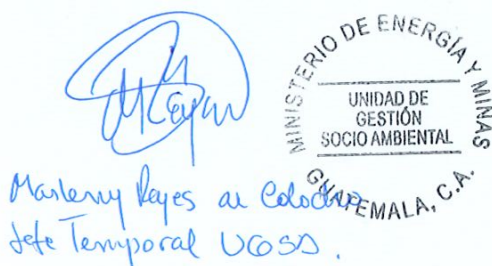 MINISTERIO DE ENERGÍA Y MINAS
UNIDAD DE
GESTIÓN
SOCIO AMBIENTAL
GUATEMALA, C.A.
Marleny Reyes de
Jefe Temporal UGSA.